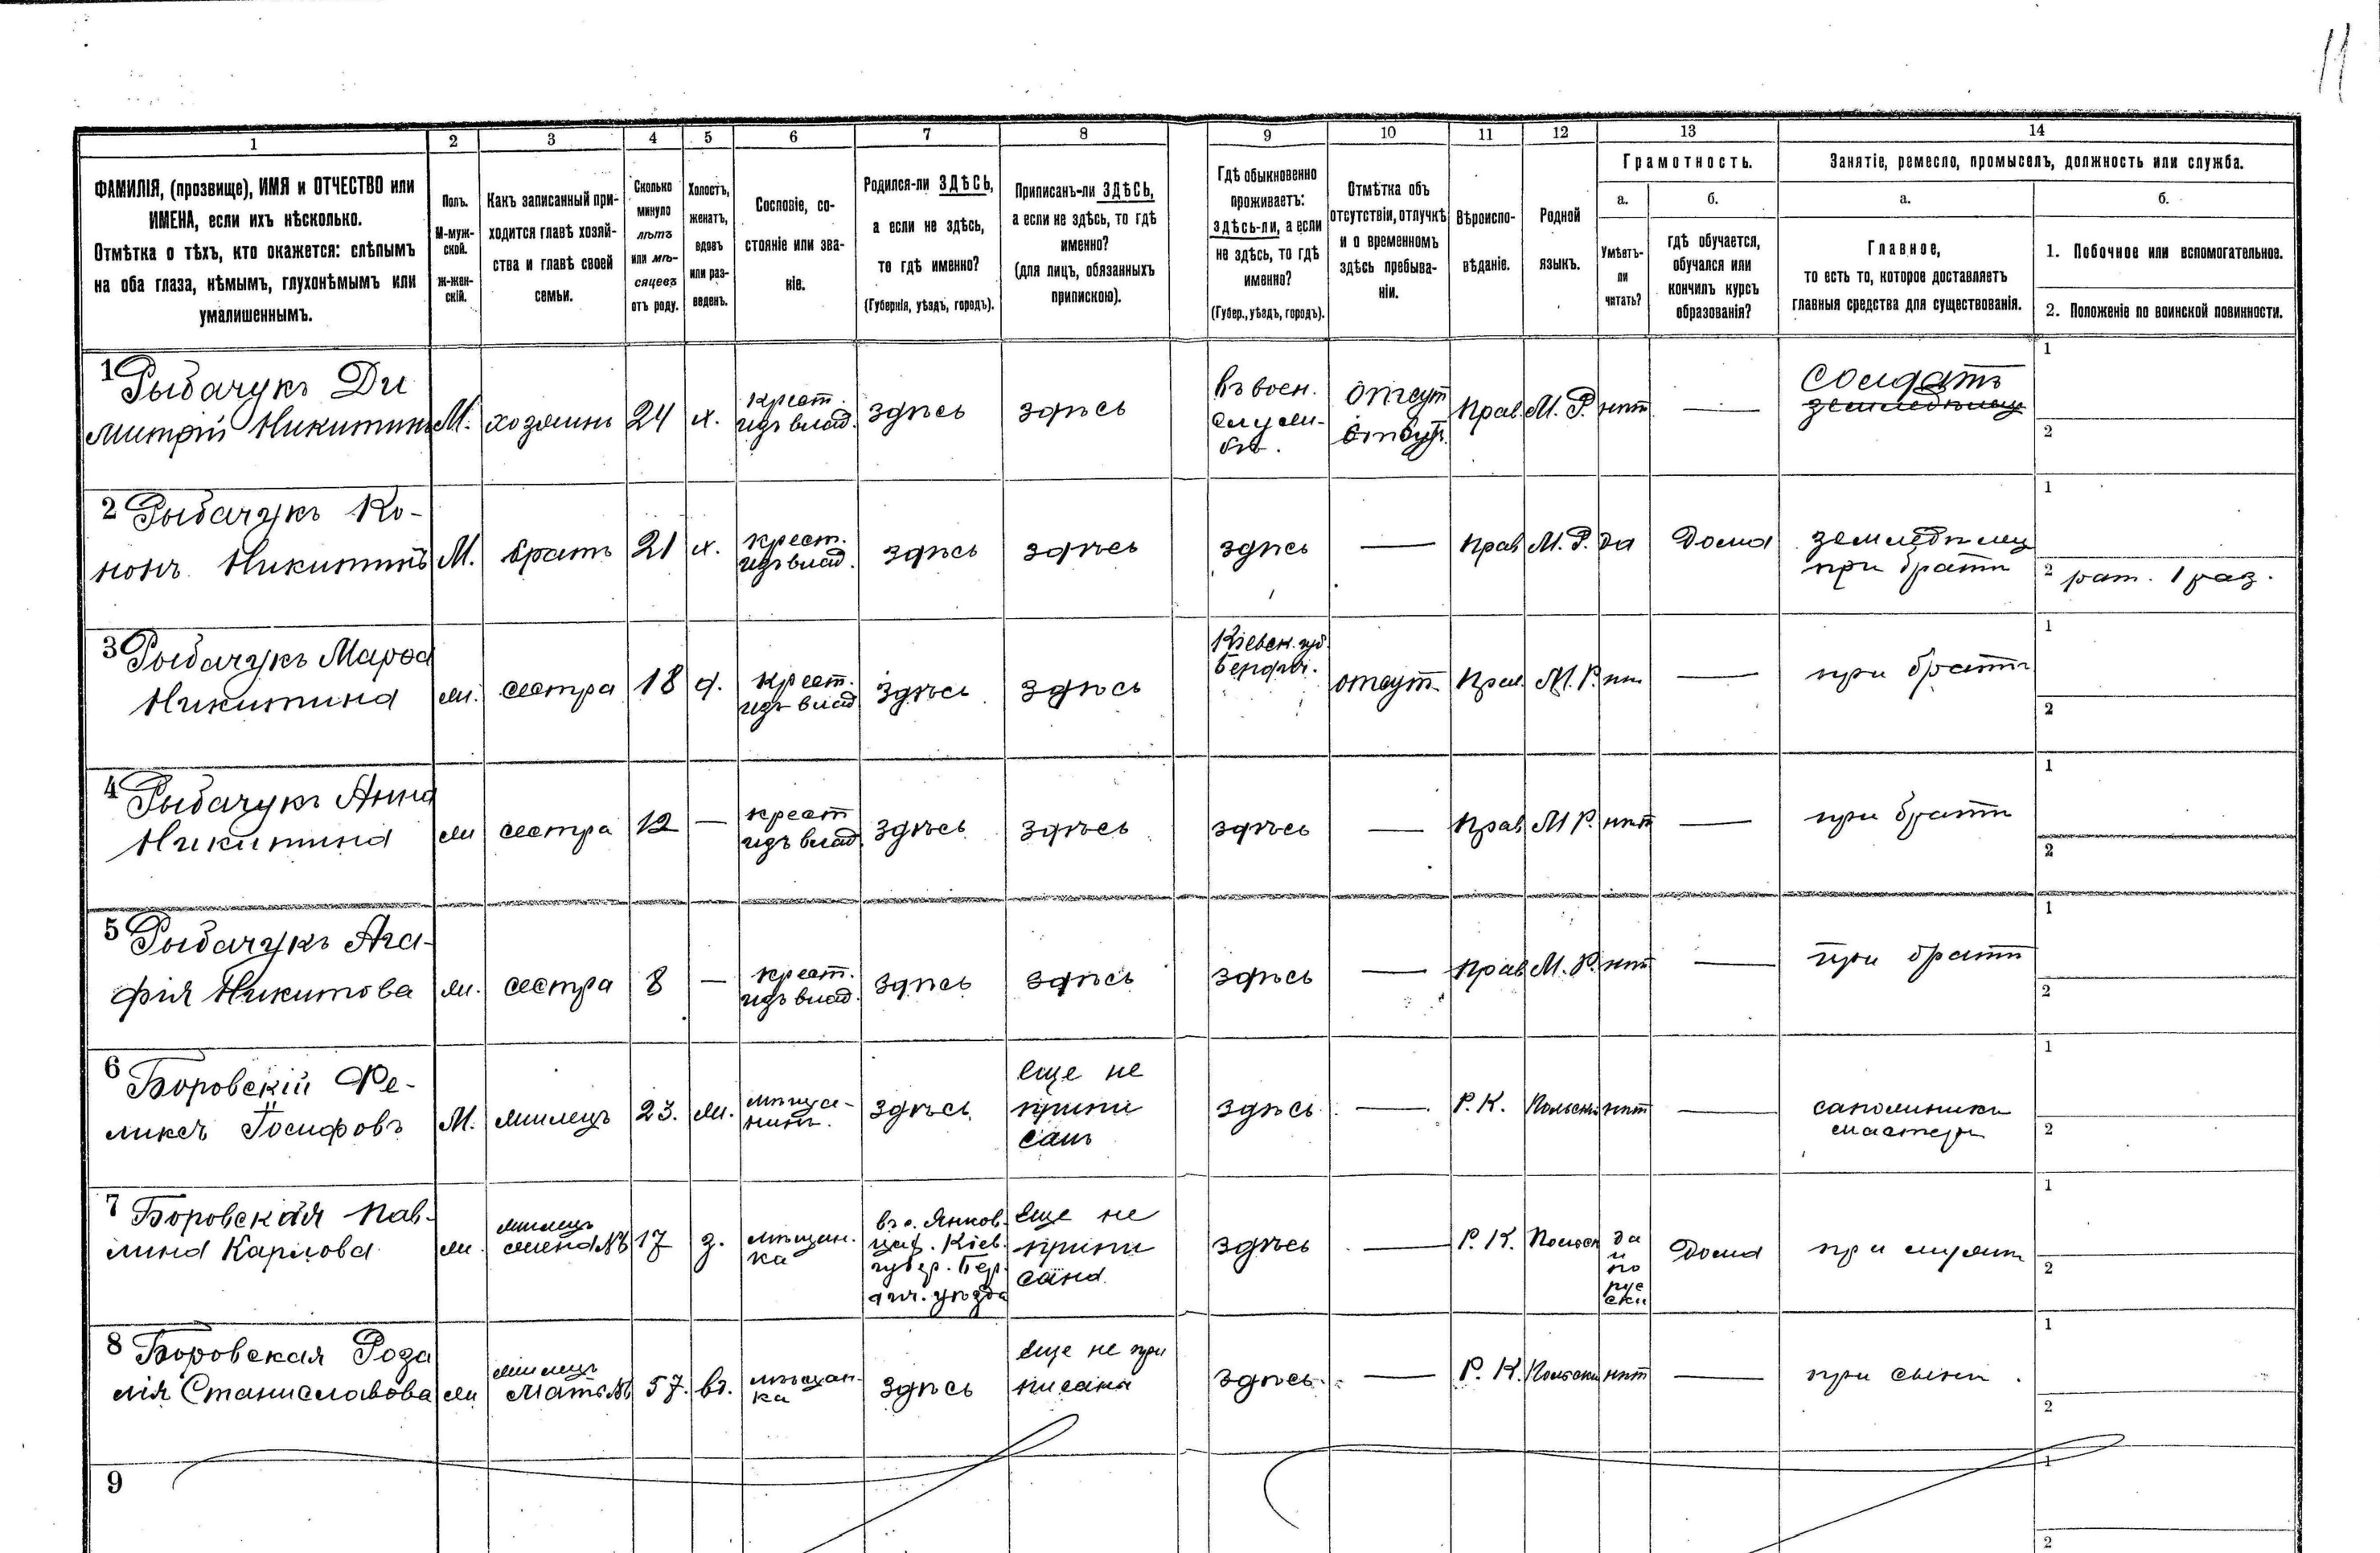 11
1 2 3 4 5 6 7 8 9 10 11 12 13 14
ФАМИЛІЯ, (прозвище), ИМЯ и ОТЧЕСТВО или
ИМЕНА, если ихъ нѣсколько.
Отмѣтка о тѣхъ, кто окажется: слѣпымъ
на оба глаза, нѣмымъ, глухонѣмымъ или
умалишеннымъ.
Полъ.
М-муж-
ской.
ж-жен-
скій.
Какъ записанный при-
ходится главѣ хозяй-
ства и главѣ своей
семьи.
Сколько
минуло
лѣтъ
или мѣ-
сяцевъ
отъ роду.
Холостъ,
женатъ,
вдовъ
или раз-
веденъ.
Сословіе, со-
стояніе или зва-
ніе.
Родился-ли ЗДѢСЬ,
а если не здѣсь,
то гдѣ именно?
(Губернія, уѣздъ, городъ).
Приписанъ-ли ЗДѢСЬ,
а если не здѣсь, то гдѣ
именно?
(для лицъ, обязанныхъ
припискою).
Гдѣ обыкновенно
проживаетъ:
здѣсь-ли, а если
не здѣсь, то гдѣ
именно?
(Губер., уѣздъ, городъ).
Отмѣтка объ
отсутствіи, отлучкѣ
и о временномъ
здѣсь пребыва-
ніи.
Вѣроиспо-
вѣданіе.
Родной
языкъ.
Грамотность.
а.
Умѣетъ-
ли
читать?
б.
гдѣ обучается,
обучался или
кончилъ курсъ
образованія?
Занятіе, ремесло, промыселъ, должность или служба.
а.
Главное,
то есть то, которое доставляетъ
главныя средства для существованія.
б.
1. Побочное или вспомогательное.
2. Положеніе по воинской повинности.
1 Рыбачукъ Ди
митрій Никитинъ
М.
хозяинъ
24
х.
крест.
изъ влад.
здѣсь
здѣсь
въ воен.
служ-
бѣ.
отсут
Прав
М. Р.
нѣт
—
солдатъ
земледѣлец
1
2
2 Рыбачукъ Ко-
нонъ Никитинъ
М.
братъ
21
х.
крест.
изъ влад.
здѣсь
здѣсь
здѣсь
—
Прав
М. Р.
да
Дома
земледѣлец
при братѣ
1
2 рат. 1 раз.
3 Рыбачукъ
Никитина
ж.
сестра
18
д.
крест.
изъ влад
здѣсь
здѣсь
Кіевск. губ.
отсут.
Прав
М. Р.
нѣт
—
при братѣ
1
2
4 Рыбачукъ Анна
Никитина
ж
сестра
12
—
крест
изъ влад.
здѣсь
здѣсь
здѣсь
—
Прав
М Р.
нѣт
—
при братѣ
1
2
5 Рыбачукъ Ага-
фія Никитова
ж.
сестра
8
—
крест.
изъ влад.
здѣсь
здѣсь
здѣсь
—
Прав
М. Р.
нѣт
—
при братѣ
1
2
6 Боровскій Фе-
ликсъ Іосифовъ
М.
жилецъ
23.
ж.
мѣща-
нинъ.
здѣсь
еще не
припи
санъ
здѣсь
—
Р. К.
Польски
нѣт
—
сапожники
мастеръ
1
2
7 Боровская Пав-
лина Карлова
ж.
жилецъ
жена №6
17
з.
мѣщан.
ка
въ с. Янков.
Кіев.
губер. Бер-
дич. уѣзда
еще не
припи
сана
здѣсь
—
Р. К.
Польск
да
и
по
рус
ски
Дома
при мужѣ
1
2
8 Боровская Роза
лія Станиславова
ж
жилецъ
мать №6
57.
вд.
мѣщан-
ка
здѣсь
еще не при
писана
здѣсь
—
Р. К.
Польски
нѣт
—
при сынѣ
1
2
9
1
2